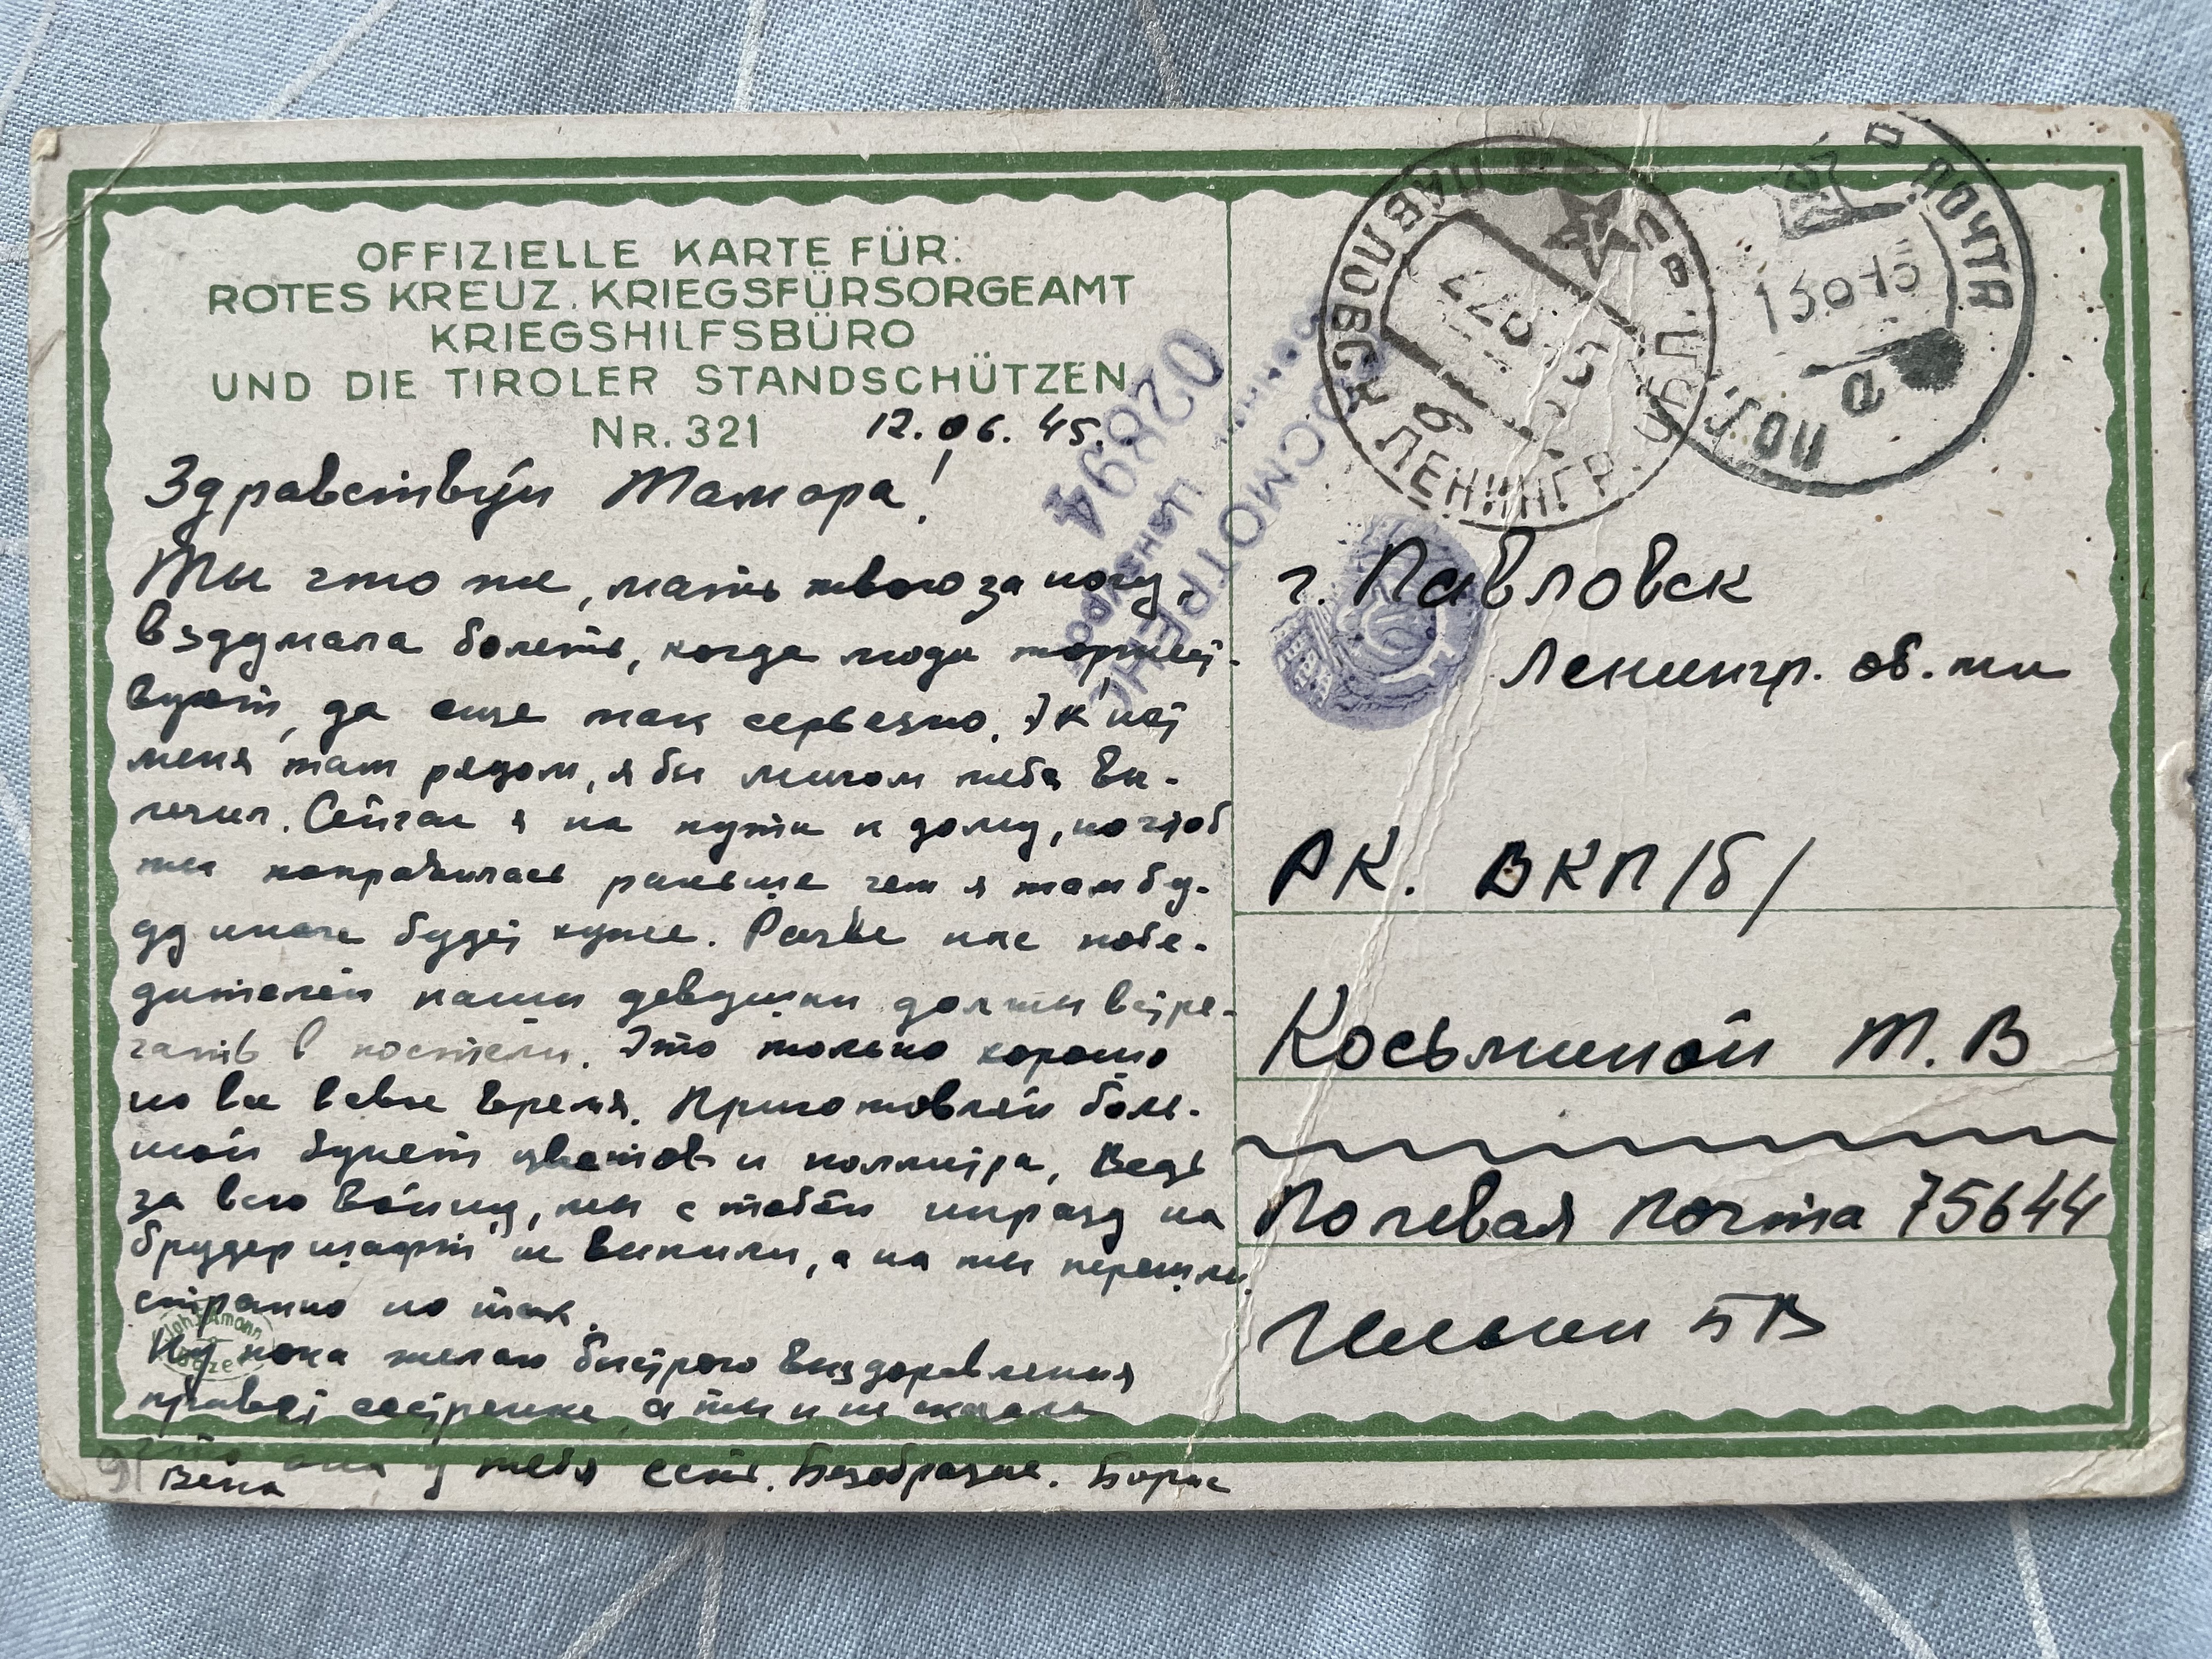 OFFIZIELLE KARTE FÜR:
ROTES KREUZ. KRIEGSFÜRSORGEAMT
KRIEGSHILFSBÜRO
UND DIE TIROLER STANDSCHÜTZEN
NR. 321 12.06.45.
Здравствуй Тамара!
Ты что же, мать твою за ногу,
вздумала болеть, когда люди торжест-
вуют, да еще так серьезно. Жаль нет
меня там рядом, я бы мигом тебя вы-
лечил. Сейчас я на пути к дому, но чтоб
ты поправилась раньше чем я там бу-
ду иначе будет хуже. Разве нас побе-
дителей наши девушки должны встре-
чать в постели. Это только хорошо
но все в свое время. Приготовляй боль-
шой букет цветов и поллитра, Ведь
за всю войну, мы с тобой ни разу на
брудершафт не выпили, а на ты перешли
странно но так.
Ну пока желаю быстрого выздоровления
привет сестренке, а ты и не сказала
что она у тебя есть. Безобразие. Борис
Вена
91
02894
Военной Цензурой
ПРОСМОТРЕНО
ПАВЛОВСК ЛЕНИНГР.
б
ПОЧТА
ПОЛ
15 6 45
а
г. Павловск
Ленингр. об.ти
РК. ВКП/б/
Косьминой Т.В
Полевая почта 75644
Ильин БВ